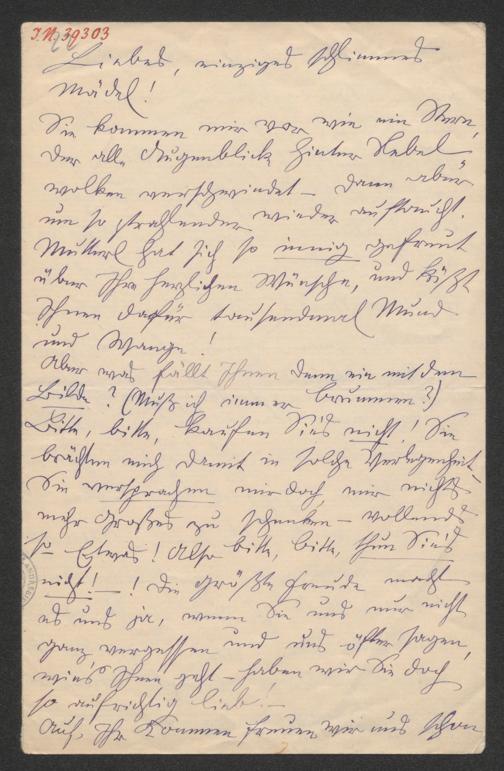 I.N. 39303
Liebes, einziges schlimmes
Mädel!
Sie kommen mir vor wie ein Stern,
der alle Augenblick hinter Nebel
wolken verschwindet – dann aber
um so strahlender wieder auftaucht.
Mutterl hat sich so innig gefreut
über Ihre herzlichen Wünsche, und küßt
Ihnen dafür tausendmal Mund
und Wange!
Aber was fällt Ihnen denn ein mit dem
Bilde? (Muß ich immer brummen?)
Bitte, bitte, kaufen Sie's nicht! Sie
brächten mich damit in solche Verlegenheit
Sie versprachen mir doch, mir nichts
mehr Großes zu schenken – vollends
so Etwas! Also bitte, bitte, thun Sie's
nicht! – ! Die größte Freude macht
es uns ja, wenn Sie uns nur nicht
ganz vergessen und uns öfter sagen,
wie's Ihnen geht – haben wir Sie doch
so aufrichtig lieb! –
Auf Ihr Kommen freuen wir uns schon